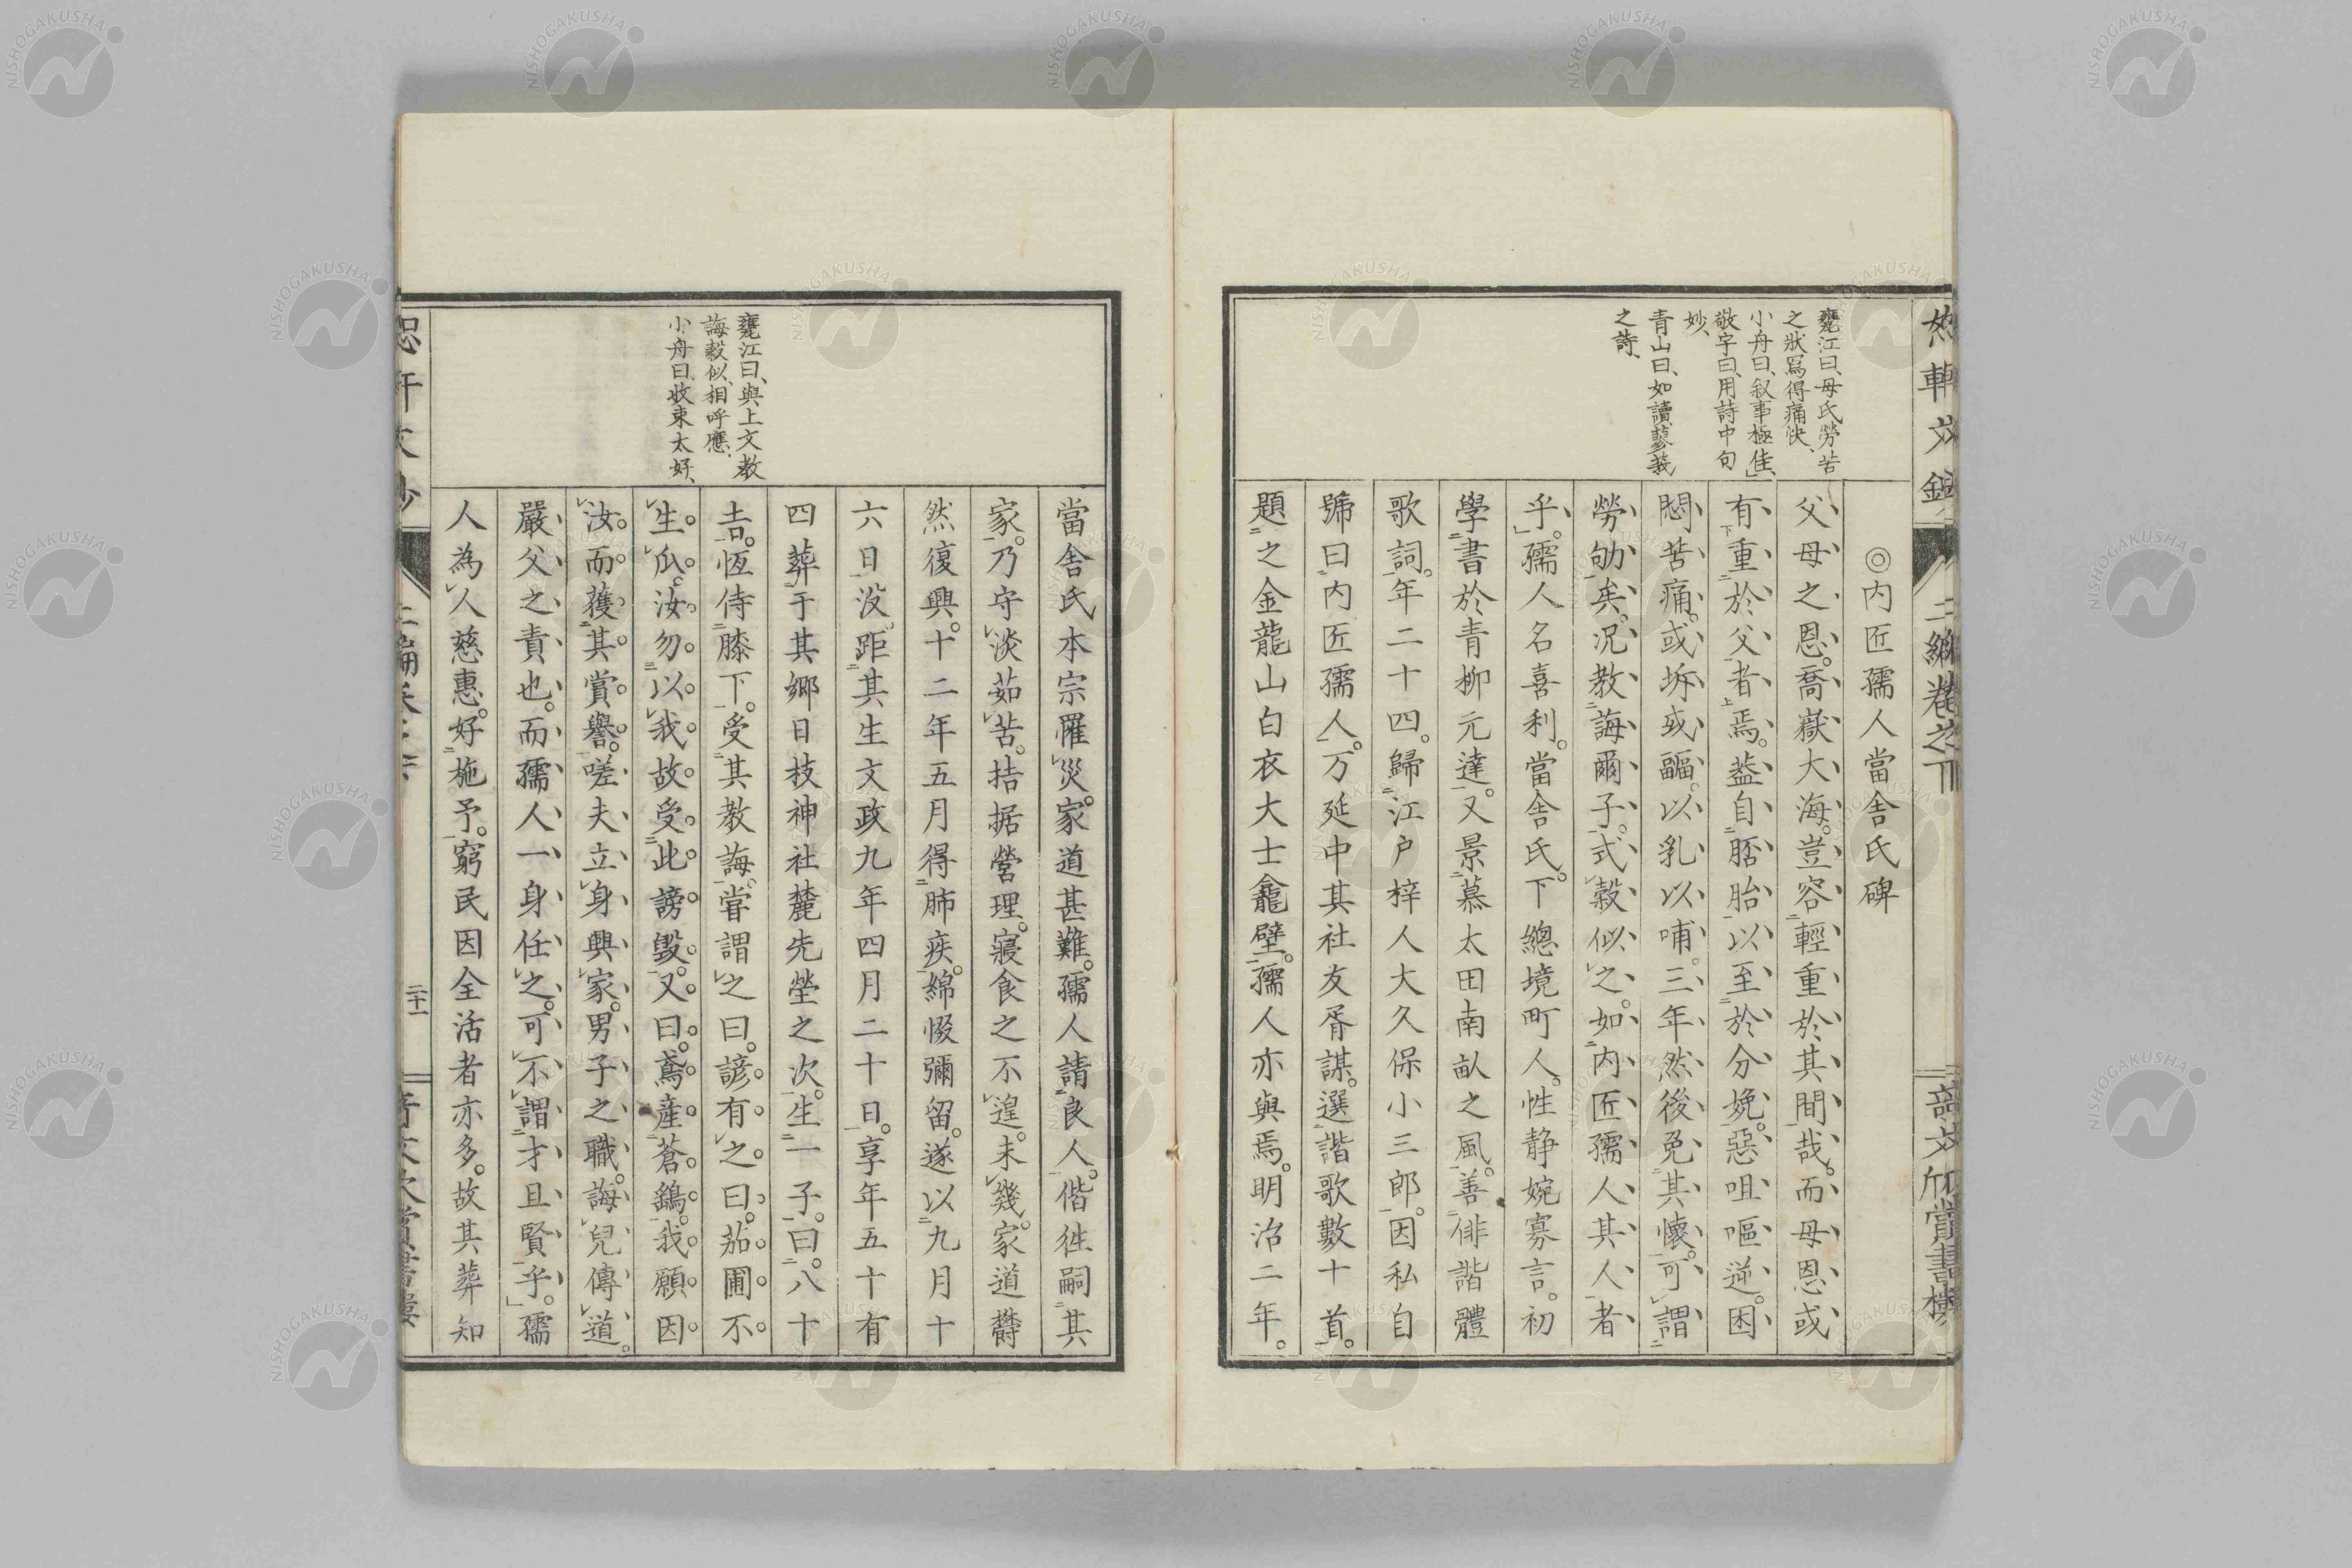 ◎内匠孺人當舍氏碑
父母之恩。喬嶽大海。豈容輕重於其間哉。而母恩或
有重於父者焉。蓋自胚胎以至於分娩。惡咀嘔逆。困
悶苦痛。或坼或疈。以乳以哺。三年然後免其懷。可謂
勞劬矣。況教誨爾子。式穀似之。如內匠孺人其人者
乎。孺人名喜利。當舍氏。下總境町人。性静婉寡言。初
學書於青柳元達。又景慕太田南畝之風。善俳諧體
歌詞。年二十四。歸江戶梓人大久保小三郎。因私自
號曰內匠孺人。万延中其社友胥謀。選諧歌數十首。
題之金龍山白衣大士龕壁。孺人亦與焉。明治二年。
甕江曰、母氏勞苦
之狀寫得痛快、
小舟曰、叙事極佳、
敬宇曰、用詩中句
妙、
青山曰、如讀蓼莪
之詩、
當舍氏本宗罹災。家道甚難。孺人請良人。偕徃嗣其
家。乃守淡茹苦。拮据營理。寢食之不遑。未幾。家道欝
然復興。十二年五月得肺疾。綿惙彌留。遂以九月十
六日沒。距其生文政九年四月二十日。享年五十有
四葬于其鄉日枝神社麓先塋之次。生一子。曰。八十
吉。恆侍膝下。受其教誨。甞謂之曰。諺有之。曰。茄圃不
生瓜。汝勿以我故受此謗毀。又曰。鳶産蒼鷂。我願因
汝而獲其賞譽。嗟夫立身興家。男子之職。誨兒傳道。
嚴父之責也。而孺人一身任之。可不謂才且賢乎。孺
人為人慈惠。好施予。窮民因全活者亦多。故其葬知
甕江曰、與上文教
誨穀似、相呼應、
小舟曰、收束太好、
二十一